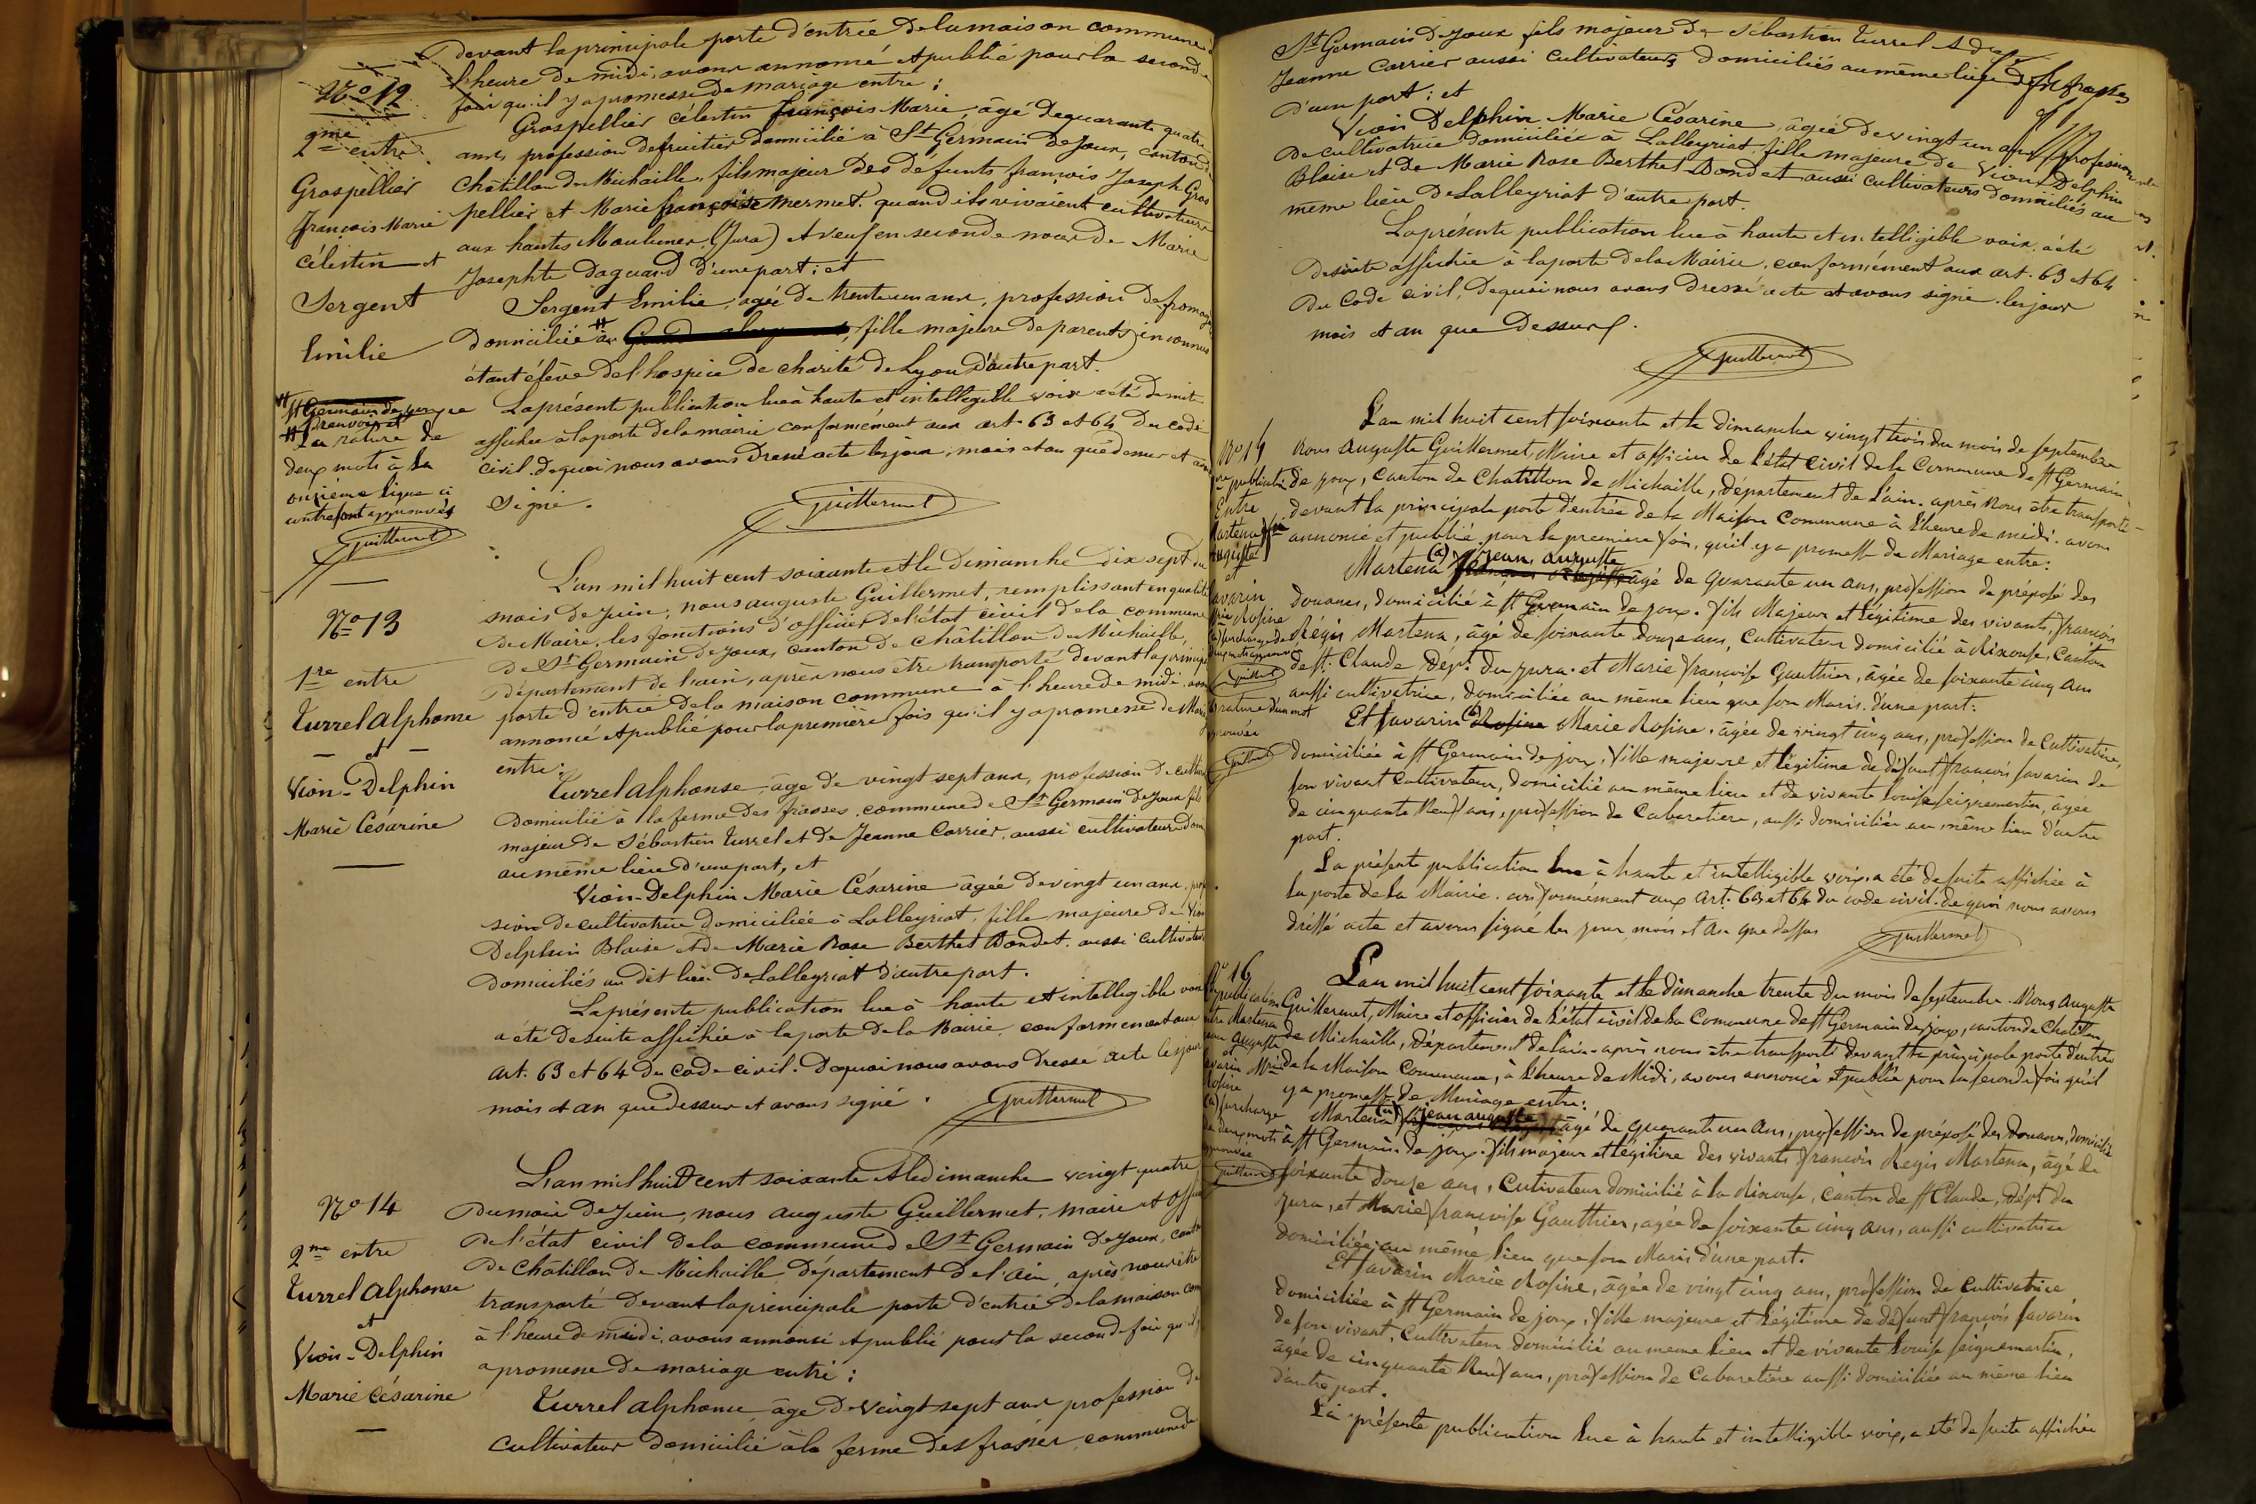 devant la principale porte d'entrée de la maison commune
l'heure de midi, avons annoncé et publié pour la seconde
fois qu'il y a promesse de mariage entre :
N° 12
2me entre
Grospellier
françois Marie
Célestin et
Sergent
Emilie
Grospellier Célestin françois Marie, âgé de quarante quatre
ans, profession de fruitier domicilié à St Germain de Joux, canton de
Châtillon de Michaille, fils majeur des défunts françois Joseph Gros
pellier et Marie françoise Mermet quand ils vivaient cultivateurs
aux hautes Moulunes (Jura) et veuf en seconde noce de Marie
Josephte Daguand d'une part ; et
Sergent Emilie, âgée de trente un ans, profession de fromagère
domiciliée , fille majeure de parents inconnus
étant élève de l'hospice de charité de Lyon d'autre part.
La présente publication lue à haute et intelligible voix a été de suite
affichée à la porte de la mairie conformément aux art. 63 et 64 du code
civil. De quoi nous avons dressé acte les jour, mois et an que dessus et avons
signé.
Guillermet
St Germain de joux
La rature de
deux mots à la
onzième ligne ci
contre sont approuvés
Guillermet
N° 13
1re entre
Turrel Alphonse
et
Vion-Delphin
Marie Césarine
L'an mil huit cent soixante et le dimanche dix sept du
mois de Juin, nous auguste Guillermet, remplissant en qualité
de Maire, les fonctions d'officier de l'état civil de la commune
de St Germain de Joux, canton de Châtillon de Michaille,
département de l'ain, après nous être transporté devant la principale
porte d'entrée de la maison commune à l'heure de midi, avons
annoncé et publié pour la première fois qu'il y a promesse de Mariage
entre :
Turrel Alphonse, âgé de vingt sept ans, profession de cultivateur
domicilié à la ferme des frasses, commune de St Germain de Joux fils
majeur de Sébastien Turrel et de Jeanne Carrier, aussi cultivateurs dom
au même lieu d'une part, et
Vion-Delphin Marie Césarine âgée de vingt un ans, profes
sion de cultivatrice domiciliée à Lalleyriat, fille majeure de Vion
Delphin Blaise et de Marie Rose Berthet Bondet, aussi cultivateurs
domiciliés au dit lieu de Lalleyriat d'autre part.
La présente publication lue à haute et intelligible voix
a été de suite affichée à la porte de la Mairie, conformément aux
art. 63 et 64 du code civil. De quoi nous avons dressé acte les jour
mois et an que dessus et avons signé.
Guillermet
N° 14
2me entre
Turrel Alphonse
et
Vion-Delphin
Marie Césarine
L'an mil huit cent soixante et le dimanche vingt quatre
du mois de Juin, nous auguste Guillermet, maire et officier
de l'état civil de la commune de St Germain de Joux, canton
de Châtillon de Michaille, département de l'ain, après nous être
transporté devant la principale porte d'entrée de la maison com
à l'heure de midi, avons annoncé et publié pour la seconde fois qu'il y
a promesse de mariage entre :
Turrel Alphonse, âgé de vingt sept ans profession de
cultivateur domicilié à la ferme des frasses, commune de
St Germain de Joux fils majeur de Sébastien Turrel et de
Jeanne Carrier aussi cultivateurs domiciliés au même lieu des frasses
d'une part ; et
Vion Delphin Marie Césarine, âgée de vingt un ans, profession
de cultivatrice domiciliée à Lalleyriat, fille majeure de Vion Delphin
Blaise et de Marie Rose Berthet Bondet aussi cultivateurs domiciliés au
même lieu de Lalleyriat d'autre part.
La présente publication lue à haute et intelligible voix a été
de suite affichée à la porte de la Mairie, conformément aux art. 63 et 64
du Code civil, de quoi nous avons dressé acte et avons signé les jour
mois et an que dessus.
Guillermet
publication
Entre
Martena
auguste
et
L'an mil huit cent soixante et le dimanche vingt trois du mois de septembre
nous auguste Guillermet Maire et officier de l'état civil de la Commune de St Germain
de joux, canton de Chatillon de Michaille, département de l'ain. après nous être transporté
devant la principale porte d'entrée de la Maison Commune à l'heure de midi. avons
annoncé et publié pour la première fois, qu'il y a promesse de Mariage entre :
Martena (a) jean auguste âgé de quarante un ans, profession de préposé des
douanes, domicilié à St Germain de joux. fils Majeur et légitime des vivants, françois
Régis Martena, âgé de soixante douze ans, Cultivateur domicilié à Rixouse, Canton
de St. Claude Dépt. du jura. et Marie françoise Gauthier, âgée de soixante cinq ans
aussi cultivatrice, domiciliée au même lieu que son Maris. d'une part :
Et Savarin Rosine Marie Rosine, âgée de vingt cinq ans, profession de cultivatrice,
domiciliée à St Germain de joux, fille majeure et légitime de défunt françois Savarin de
son vivant Cultivateur, domicilié au même lieu et de vivante Louise seignemartin, âgée
de cinquante neuf ans, profession de Cabaretière, aussi domiciliée au même lieu d'autre
part.
La présente publication lue à haute et intelligible voix, a été de suite affichée à
la porte de la Mairie. conformément aux Art. 63 et 64 du code civil. de quoi nous avons
dressé acte et avons signé les jour, mois et an que dessus
Guillermet
N° 16
publication
Martena
auguste
Rosine
(a) surcharge
de deux mots
Guillermet
L'an mil huit cent soixante et le dimanche trente du mois de septembre. Nous Auguste
Guillermet, Maire et officier de l'état civil de la Commune de St Germain de joux, canton de Chatillon
de Michaille, Département de l'ain. après nous être transporté devant la principale porte d'entrée
de la Maison Commune, à l'heure de Midi, avons annoncé et publié pour la seconde fois qu'il
y a promesse de Mariage entre :
Martena (a) jean auguste âgé de quarante un ans, profession de préposé des Douanes, domicilié
à St Germain de joux. fils majeur et légitime des vivants françois Régis Martena, âgé de
soixante douze ans, Cultivateur domicilié à la Rixouse, Canton de St Claude, Dépt. du
Jura, et Marie françoise Gauthier, âgée de soixante cinq ans, aussi cultivatrice
domiciliée au même lieu que son Maris d'une part.
Et Savarin Marie Rosine, âgée de vingt cinq ans, profession de cultivatrice
domiciliée à St Germain de joux, fille majeure et légitime de défunt françois Savarin
de son vivant, Cultivateur domicilié au même lieu et de vivante Louise seignemartin,
âgée de cinquante neuf ans, profession de Cabaretière aussi domiciliée au même lieu
d'autre part.
La présente publication lue à haute et intelligible voix, a été de suite affichée